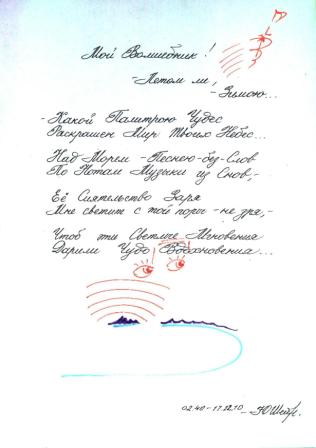 Мой Волшебник!
-Летом ли,
-Зимою...
-Какой Палитрою Чудес
Раскрашен Мир Твоих Небес...
Над Морем - Песнею-без-Слов
По Нотам Музыки из Снов,-
Её Сиятельство Заря
Мне светит с той поры - не зря,-
Чтоб эти Светлые Мгновения
Дарили Чудо Вдохновения...
02.40-17.12.10